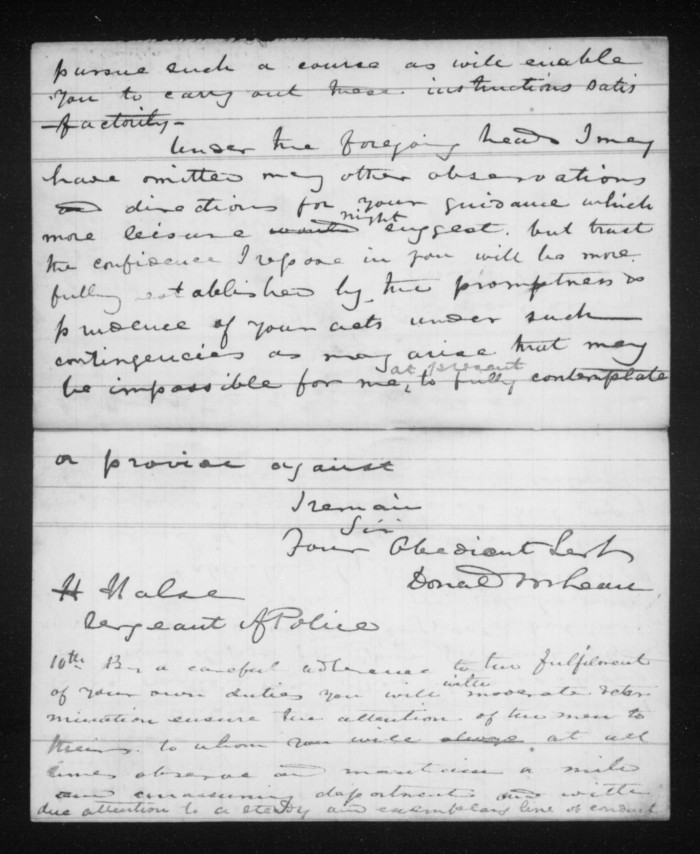 pursue such a course as will enable
you to carry out these instructions satis
factorily-
Under the foregoing heads I may
have omitted many other observations
and directions for your guidance which
more leisure would might suggest. but trust
the confidence I repose in you will be more
fully established by the promptness &
prudence of your acts under such
contingencies as may arise that may
be impossible for me, at present to fully contemplate
or provide against
I remain
Sir
Your Obedient Servt
Donald McLean
H Halse
Sergeant of Police
10th By a careful adherence to the fulfilment
of your own duties you will with moderate deter
mination ensure the attention of the men to
theirs. to whom you will always at all
times observe and maintain a mild
and unassuming deportment and with
due attention to a steady and exemplary line of conduct